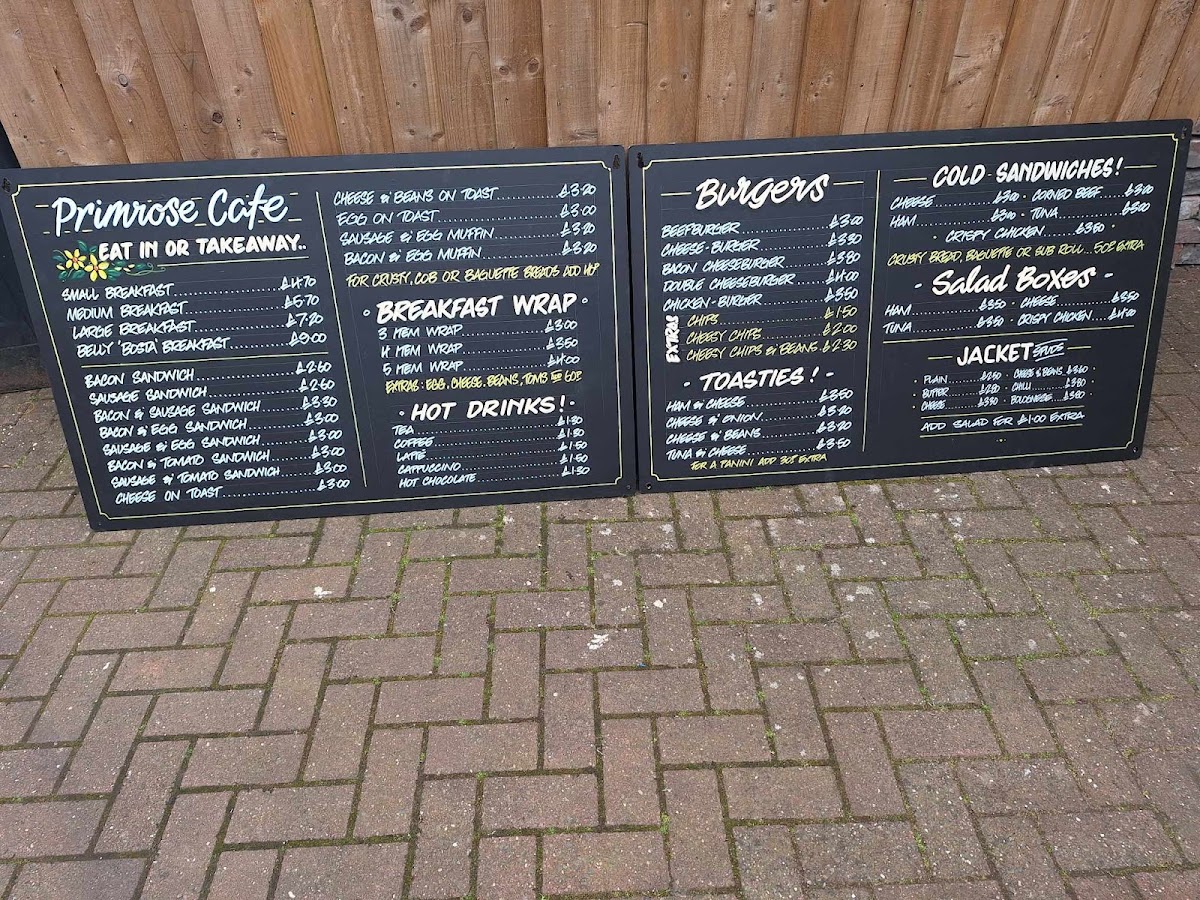 Primrose Cafe
EAT IN OR TAKEAWAY..
SMALL BREAKFAST................£4.70
MEDIUM BREAKFAST................£5.70
LARGE BREAKFAST................£7.20
BELLY 'BOSTA' BREAKFAST................£9.00
BACON SANDWICH................£2.60
SAUSAGE SANDWICH................£2.60
BACON & SAUSAGE SANDWICH................£3.30
BACON & EGG SANDWICH................£3.00
SAUSAGE & EGG SANDWICH................£3.00
BACON & TOMATO SANDWICH................£3.00
SAUSAGE & TOMATO SANDWICH................£3.00
CHEESE ON TOAST................£3.00
CHEESE & BEANS ON TOAST................£3.20
EGG ON TOAST................£3.00
SAUSAGE & EGG MUFFIN................£3.20
BACON & EGG MUFFIN................£3.20
FOR CRUSTY, COB OR BAGUETTE BREADS ADD 40P
· BREAKFAST WRAP ·
3 ITEM WRAP................£3.00
4 ITEM WRAP................£3.50
5 ITEM WRAP................£4.00
EXTRAS: EGG, CHEESE, BEANS, TOMS 60P
· HOT DRINKS! ·
TEA................£1.30
COFFEE................£1.50
LATTE................£1.50
CAPPUCCINO................£1.50
HOT CHOCOLATE................£1.30
Burgers
BEEFBURGER................£3.00
CHEESE-BURGER................£3.30
BACON CHEESEBURGER................£3.80
DOUBLE CHEESEBURGER................£4.00
CHICKEN-BURGER................£3.50
EXTRAS
CHIPS................£1.50
CHEESY CHIPS................£2.00
CHEESY CHIPS & BEANS.£2.30
· TOASTIES! ·
HAM & CHEESE................£3.50
CHEESE & ONION................£3.20
CHEESE & BEANS................£3.20
TUNA & CHEESE................£3.50
FOR A PANINI ADD 30P EXTRA
COLD SANDWICHES!
CHEESE................£3.00 · CORNED BEEF....£3.00
HAM................£3.00 · TUNA................£3.00
· CRISPY CHICKEN........£3.50 ·
CRUSTY BREAD, BAGUETTE OR SUB ROLL...50P EXTRA
- Salad Boxes -
HAM................£3.50 · CHEESE................£3.50
TUNA................£3.50 · CRISPY CHICKEN....£4.00
JACKET SPUDS
· PLAIN........£2.50 · CHEESE & BEANS
· BUTTER........£2.80 · CHILLI........£3.80
· CHEESE........£3.30 · BOLOGNESE....£3.80
ADD SALAD FER £1.00 EXTRA